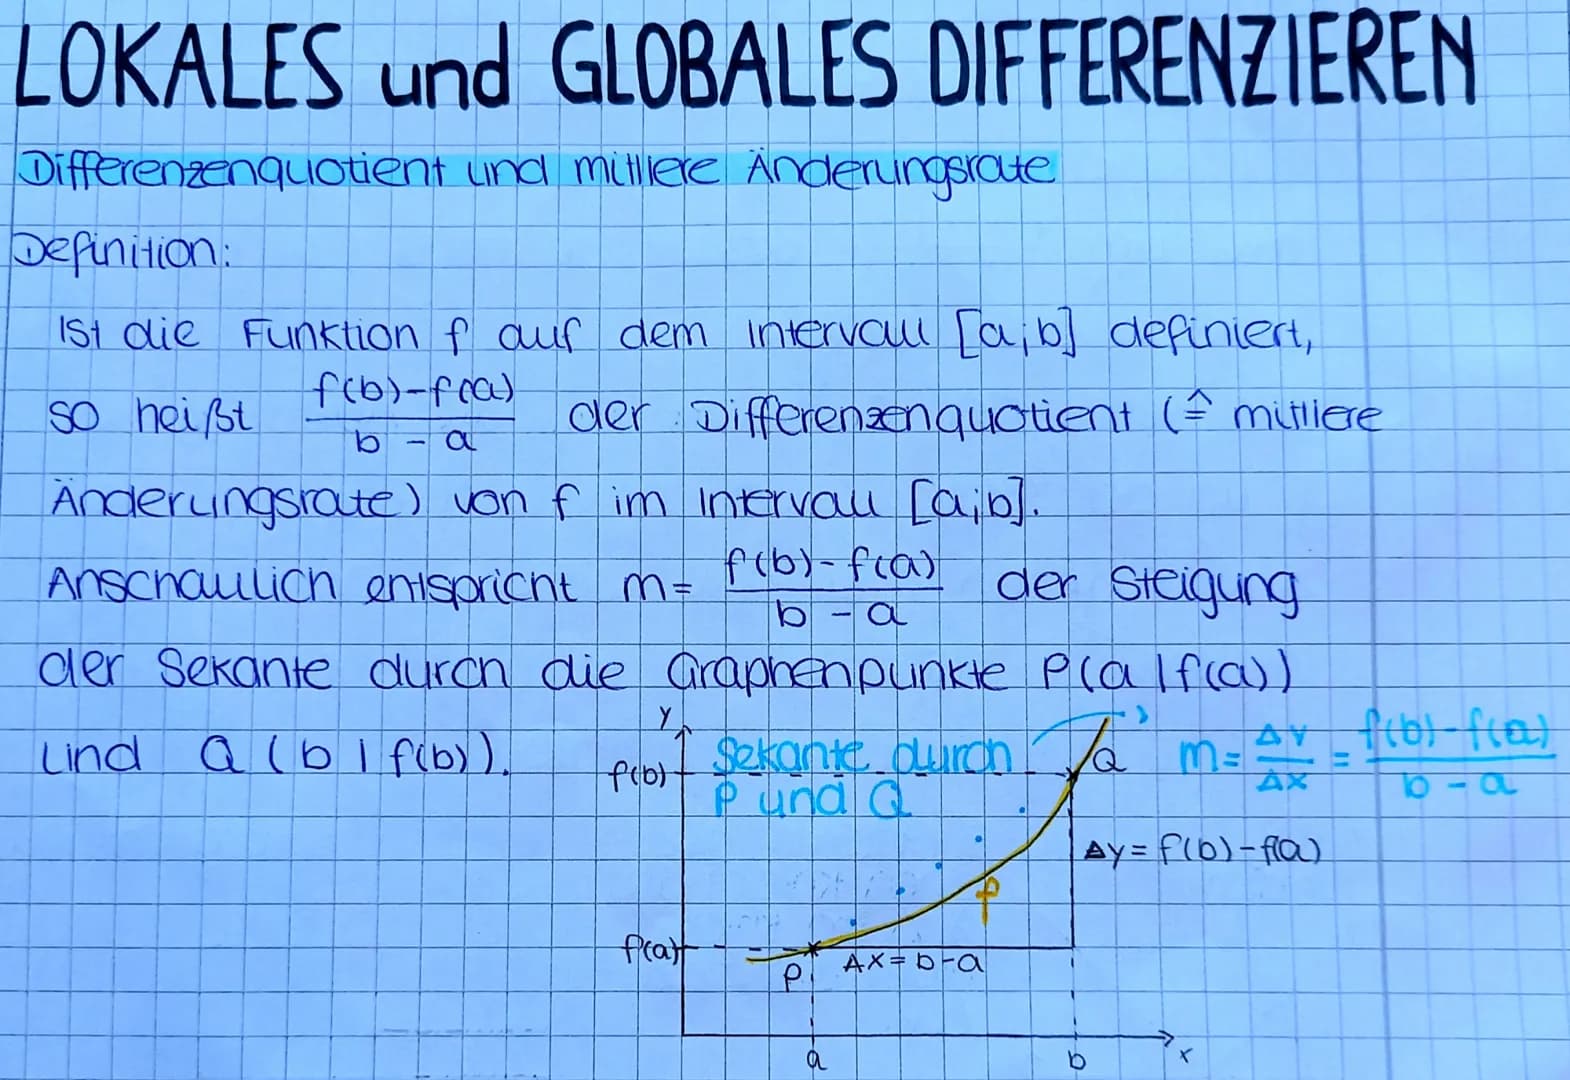 LOKALES und GLOBALES DIFFERENZIEREN
Differenzenquotient und mittlere Änderungsrate
Definition:
Ist die Funktion f auf dem Intervall [a;b] definiert,
so heißt f(b)-f(a) / b-a der Differenzenquotient (≙ mittlere
Änderungsrate) von f im Intervall [a;b].
Anschaulich entspricht m= f(b)-f(a) / b-a der Steigung
der Sekante durch die Graphenpunkte P(a|f(a))
und Q(b|f(b)).
y
f(b)
Sekante durch
P und Q
Q
m= Δy/Δx = f(b)-f(a) / b-a
Δy= f(b)-f(a)
f
f(a)
P
Δx= b-a
a
b
x